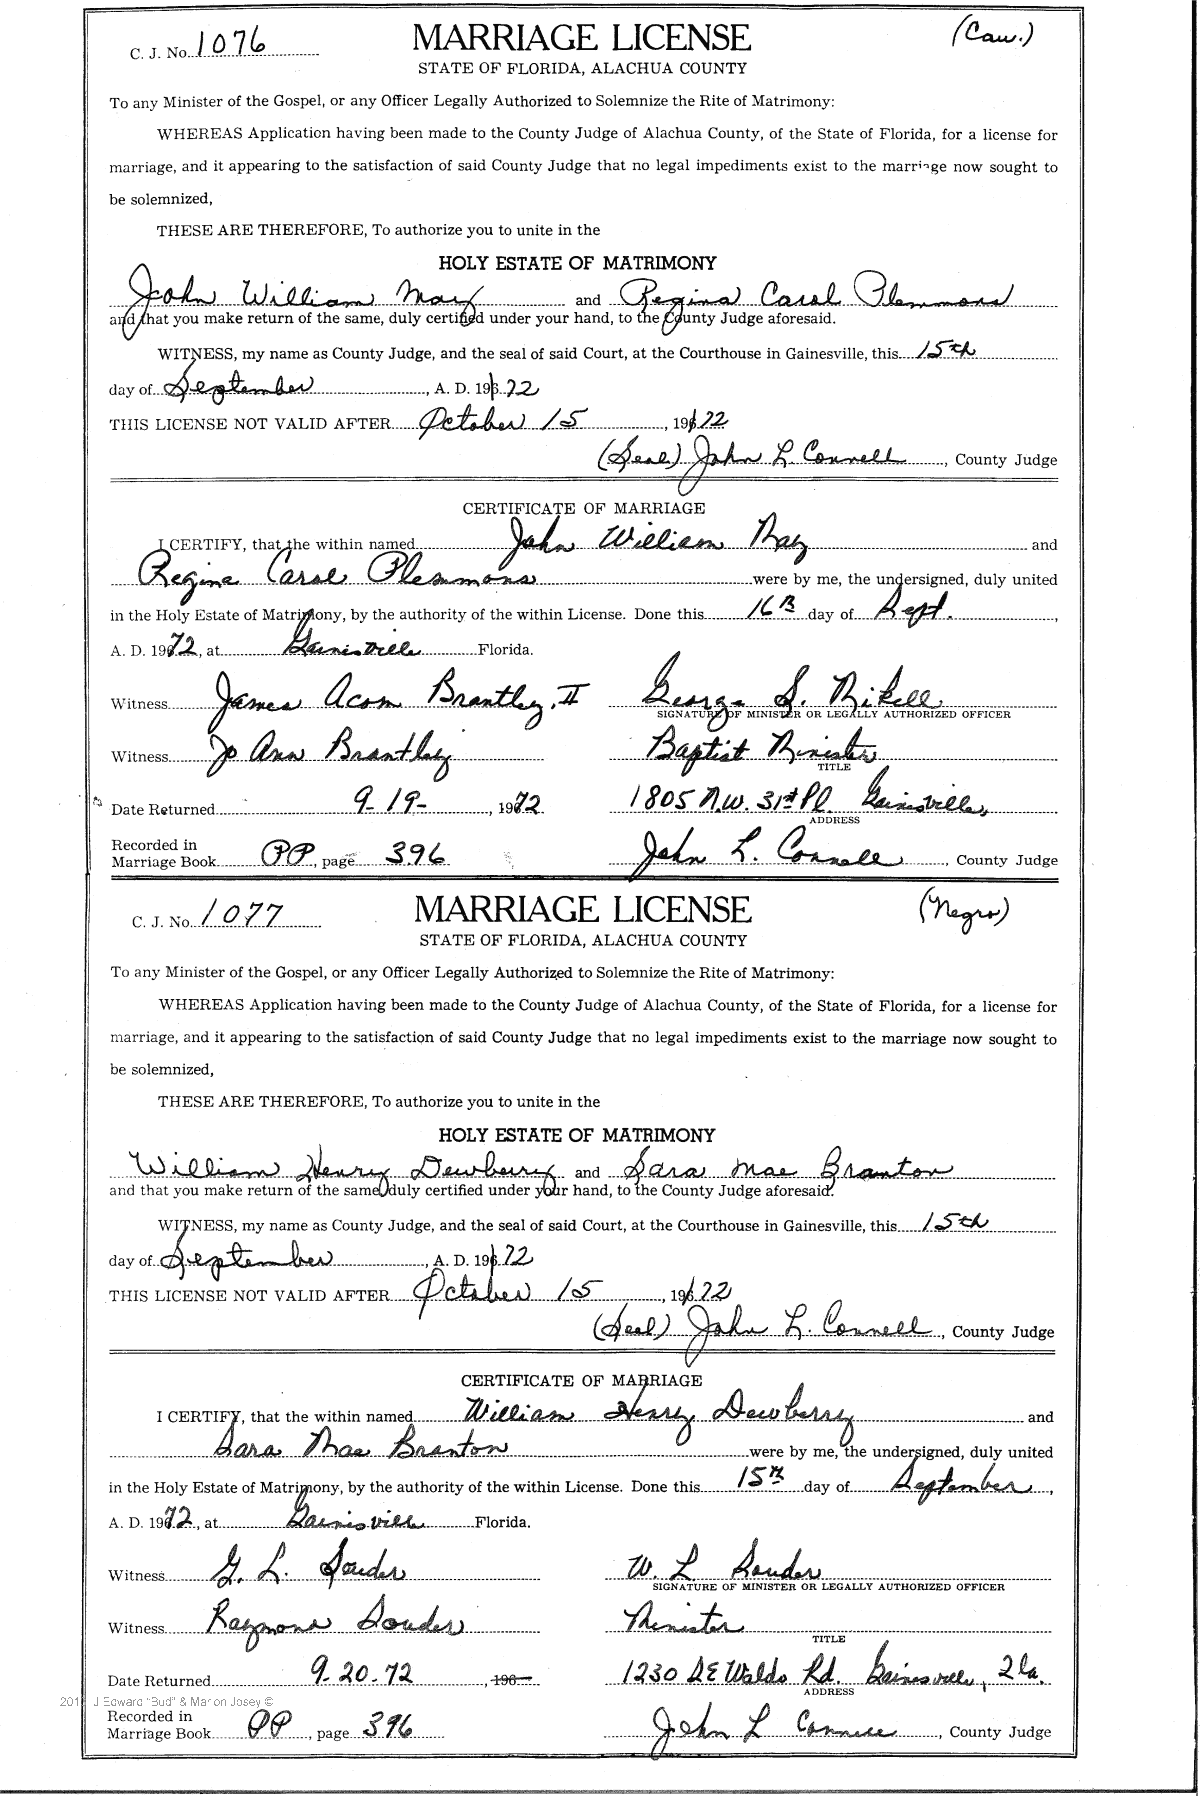 C. J. No. 1076 MARRIAGE LICENSE (Cau.)
STATE OF FLORIDA, ALACHUA COUNTY
To any Minister of the Gospel, or any Officer Legally Authorized to Solemnize the Rite of Matrimony:
WHEREAS Application having been made to the County Judge of Alachua County, of the State of Florida, for a license for
marriage, and it appearing to the satisfaction of said County Judge that no legal impediments exist to the marriage now sought to
be solemnized,
THESE ARE THEREFORE, To authorize you to unite in the
HOLY ESTATE OF MATRIMONY
John William May and Regina Carol Plemmons
and that you make return of the same, duly certified under your hand, to the County Judge aforesaid.
WITNESS, my name as County Judge, and the seal of said Court, at the Courthouse in Gainesville, this 15th
day of September, A. D. 1972
THIS LICENSE NOT VALID AFTER October 15, 1972
(Seal) John L. Connell, County Judge
CERTIFICATE OF MARRIAGE
I CERTIFY, that the within named John William May and
Regina Carol Plemmons were by me, the undersigned, duly united
in the Holy Estate of Matrimony, by the authority of the within License. Done this 16th day of Sept.,
A. D. 1972, at Gainesville Florida.
Witness James Acom Brantley, II George S. Mikell
SIGNATURE OF MINISTER OR LEGALLY AUTHORIZED OFFICER
Witness Jo Ann Brantley Baptist Minister
TITLE
Date Returned 9-19-, 1972 1805 N.W. 31st Pl. Gainesville,
ADDRESS
Recorded in
Marriage Book PP, page 396 John L. Connell, County Judge
C. J. No. 1077 MARRIAGE LICENSE (Negro)
STATE OF FLORIDA, ALACHUA COUNTY
To any Minister of the Gospel, or any Officer Legally Authorized to Solemnize the Rite of Matrimony:
WHEREAS Application having been made to the County Judge of Alachua County, of the State of Florida, for a license for
marriage, and it appearing to the satisfaction of said County Judge that no legal impediments exist to the marriage now sought to
be solemnized,
THESE ARE THEREFORE, To authorize you to unite in the
HOLY ESTATE OF MATRIMONY
William Henry Dewberry and Sara Mae Branton
and that you make return of the same, duly certified under your hand, to the County Judge aforesaid.
WITNESS, my name as County Judge, and the seal of said Court, at the Courthouse in Gainesville, this 15th
day of September, A. D. 1972
THIS LICENSE NOT VALID AFTER October 15, 1972
(Seal) John L. Connell, County Judge
CERTIFICATE OF MARRIAGE
I CERTIFY, that the within named William Henry Dewberry and
Sara Mae Branton were by me, the undersigned, duly united
in the Holy Estate of Matrimony, by the authority of the within License. Done this 15th day of September,
A. D. 1972, at Gainisville Florida.
Witness G. L. Souder W. L Souder
SIGNATURE OF MINISTER OR LEGALLY AUTHORIZED OFFICER
Witness Raymond Souder Minister
TITLE
Date Returned 9-20-72, 196 1230 SE Waldo Rd. Gainesville, Fla.
ADDRESS
J Edward "Bud" & Marion Josey ©
Recorded in
Marriage Book PP, page 396 John L Connell, County Judge